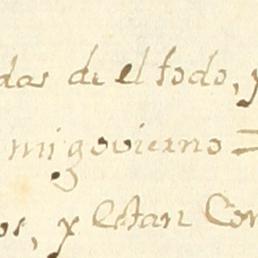 das de el todo, y
mi govierno =
os, y estan Con